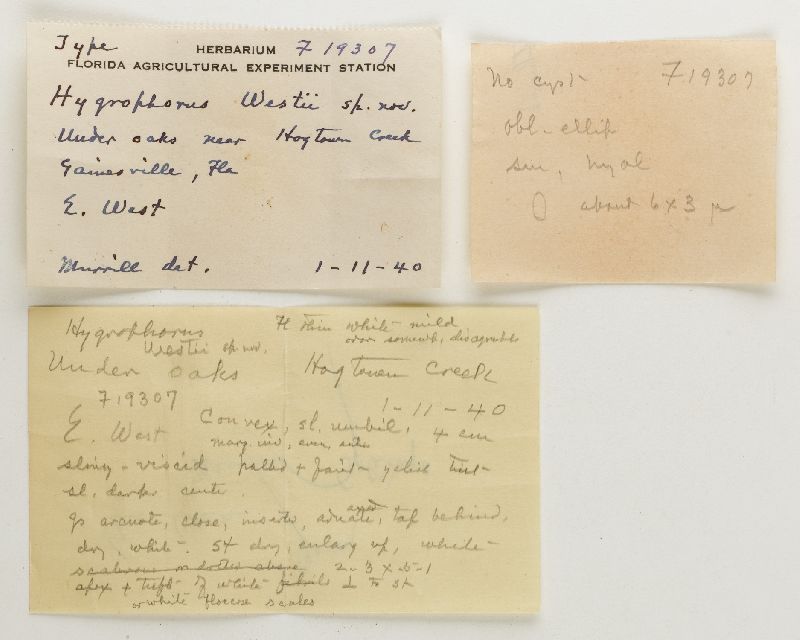 Type HERBARIUM F 19307
FLORIDA AGRICULTURAL EXPERIMENT STATION
Hygrophorus Westii sp. nov.
Under oaks near Hogtown Creek
Gainesville, Fla
E. West
Murrill det. 1-11-40
No cyst F 19307
obl-ellip
sm, hyal
0 about 6 x 3 µ
Hygrophorus Westii sp nov.
Fl thin white mild
odor somewh, disagreeable
Under oaks Hogtown Creek
F19307 1-11-40
E. West Convex, sl. umbil, 4 cm
marg. inv, even,
slimy-viscid pallid + faint-
sl. darker center.
gs arcuate, close, inserted, adnate, tap behind,
dry, white. St dry, enlarg up, white-
2-3 x .5-1
apex + tufts of white to st
or white floccose scales